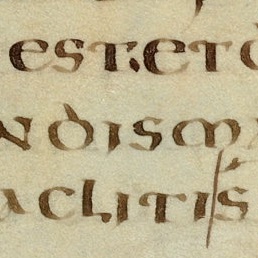 est·et
ndism
aclitis